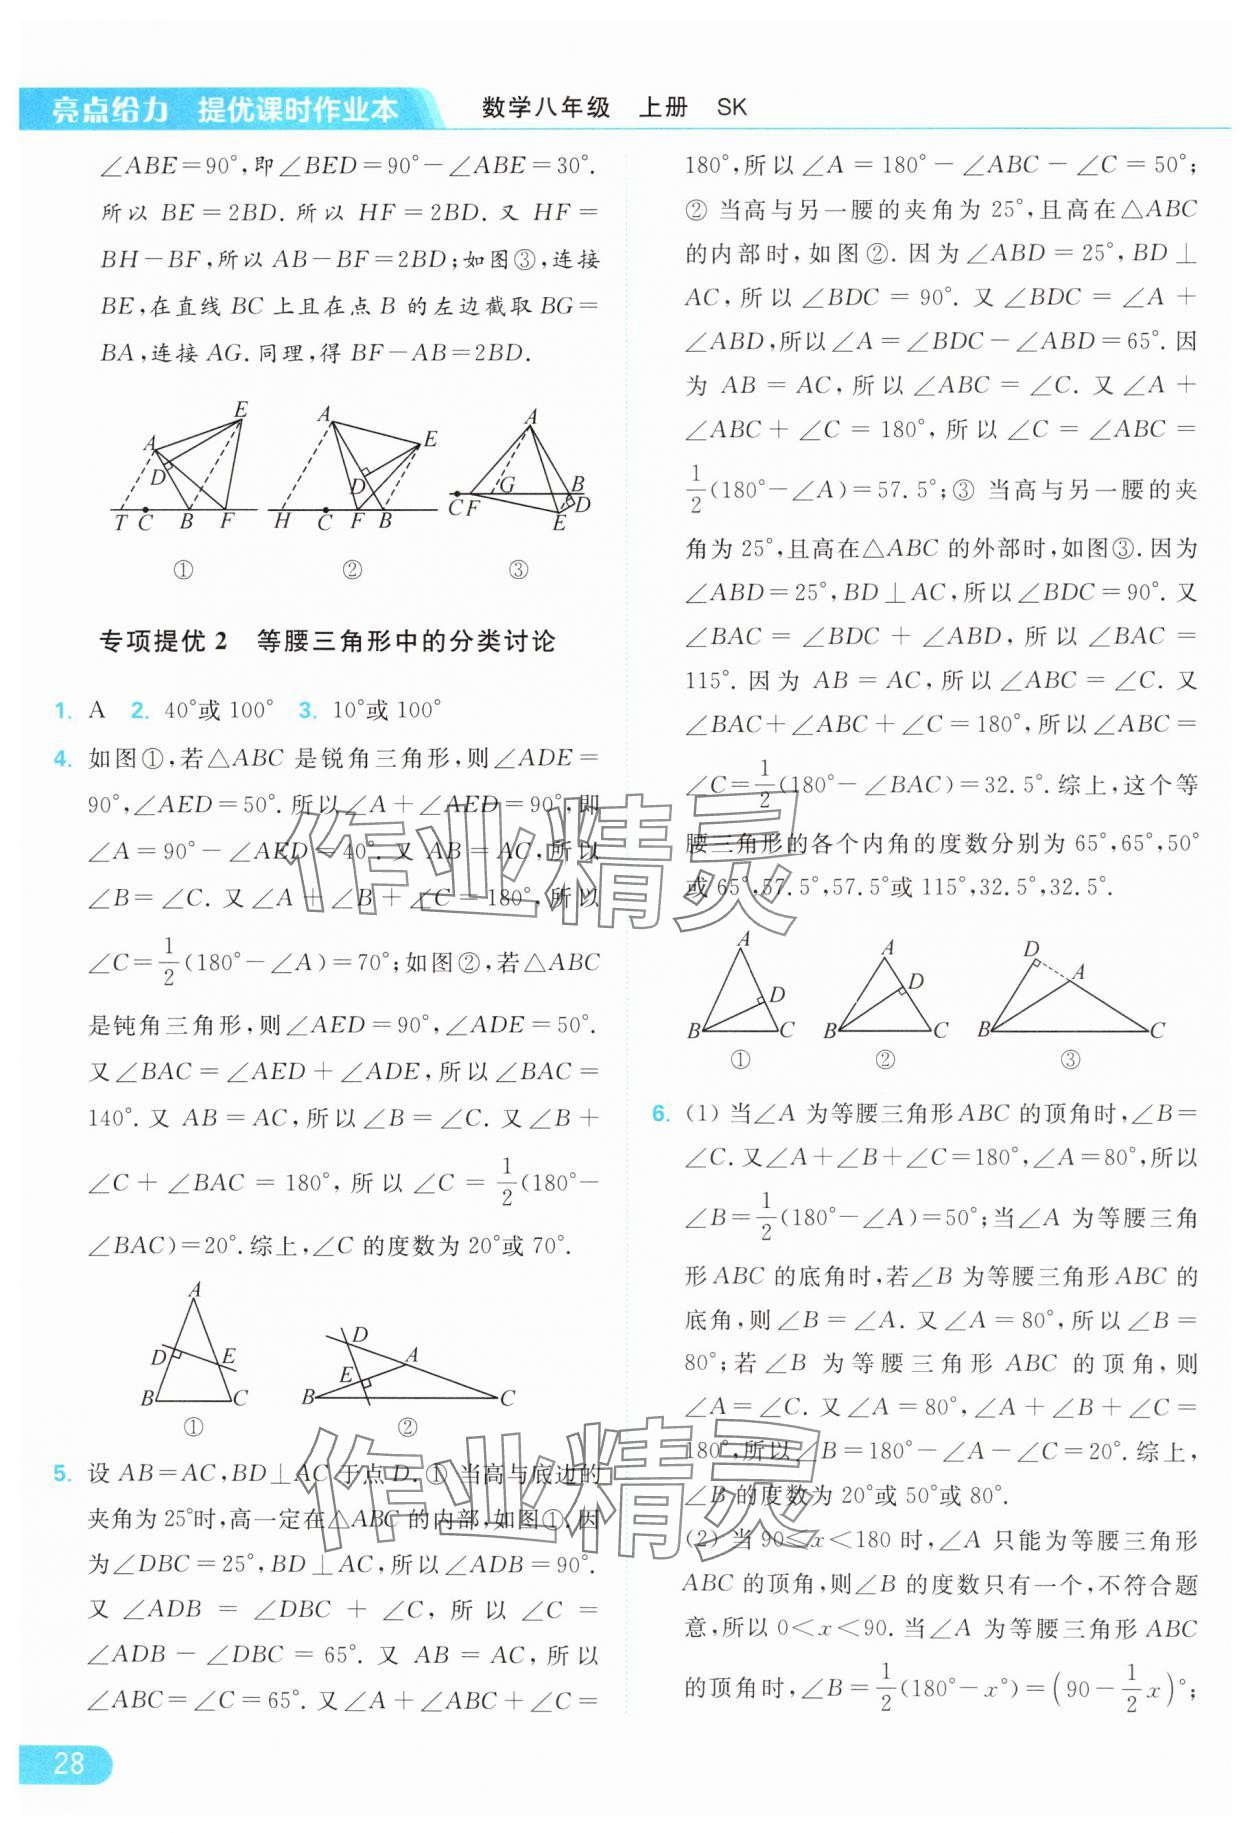 亮点给力 提优课时作业本 数学八年级 上册 SK
∠ABE=90°,即∠BED=90°-∠ABE=30°.
所以 BE=2BD. 所以 HF=2BD. 又 HF=
BH-BF,所以 AB-BF=2BD;如图③,连接
BE,在直线 BC 上且在点 B 的左边截取 BG=
BA,连接 AG. 同理,得 BF-AB=2BD.
A E D T C B F
①
A E D H C F B
②
A C F G B D E
③
专项提优 2 等腰三角形中的分类讨论
1. A 2. 40°或 100° 3. 10°或 100°
4. 如图①,若△ABC 是锐角三角形,则∠ADE=
90°,∠AED=50°. 所以∠A+∠AED=90°,即
∠A=90°-∠AED=40°. 又 AB=AC,所以
∠B=∠C. 又∠A+∠B+∠C=180°,所以
∠C=1/2(180°-∠A)=70°;如图②,若△ABC
是钝角三角形,则∠AED=90°,∠ADE=50°.
又∠BAC=∠AED+∠ADE,所以∠BAC=
140°. 又 AB=AC,所以∠B=∠C. 又∠B+
∠C+∠BAC=180°,所以∠C=1/2(180°-
∠BAC)=20°. 综上,∠C 的度数为 20°或 70°.
A D E B C
①
D A E B C
②
5. 设 AB=AC,BD⊥AC 于点 D. ① 当高与底边的
夹角为 25°时,高一定在△ABC 的内部,如图①. 因
为∠DBC=25°,BD⊥AC,所以∠ADB=90°.
又∠ADB=∠DBC+∠C,所以∠C=
∠ADB-∠DBC=65°. 又 AB=AC,所以
∠ABC=∠C=65°. 又∠A+∠ABC+∠C=
28
180°,所以∠A=180°-∠ABC-∠C=50°;
② 当高与另一腰的夹角为 25°,且高在△ABC
的内部时,如图②. 因为∠ABD=25°,BD⊥
AC,所以∠BDC=90°. 又∠BDC=∠A+
∠ABD,所以∠A=∠BDC-∠ABD=65°. 因
为 AB=AC,所以∠ABC=∠C. 又∠A+
∠ABC+∠C=180°,所以∠C=∠ABC=
1/2(180°-∠A)=57.5°;③ 当高与另一腰的夹
角为 25°,且高在△ABC 的外部时,如图③. 因为
∠ABD=25°,BD⊥AC,所以∠BDC=90°. 又
∠BAC=∠BDC+∠ABD,所以∠BAC=
115°. 因为 AB=AC,所以∠ABC=∠C. 又
∠BAC+∠ABC+∠C=180°,所以∠ABC=
∠C=1/2(180°-∠BAC)=32.5°. 综上,这个等
腰三角形的各个内角的度数分别为 65°,65°,50°
或 65°,57.5°,57.5°或 115°,32.5°,32.5°.
A D B C
①
A D B C
②
D A B C
③
6. (1) 当∠A 为等腰三角形 ABC 的顶角时,∠B=
∠C. 又∠A+∠B+∠C=180°,∠A=80°,所以
∠B=1/2(180°-∠A)=50°;当∠A 为等腰三角
形 ABC 的底角时,若∠B 为等腰三角形 ABC 的
底角,则∠B=∠A. 又∠A=80°,所以∠B=
80°;若∠B 为等腰三角形 ABC 的顶角,则
∠A=∠C. 又∠A=80°,∠A+∠B+∠C=
180°,所以∠B=180°-∠A-∠C=20°. 综上,
∠B 的度数为 20°或 50°或 80°.
(2) 当 90≤x<180 时,∠A 只能为等腰三角形
ABC 的顶角,则∠B 的度数只有一个,不符合题
意,所以 0<x<90. 当∠A 为等腰三角形 ABC
的顶角时,∠B=1/2(180°-x°)=(90-1/2x)°;
作业精灵
作业精灵